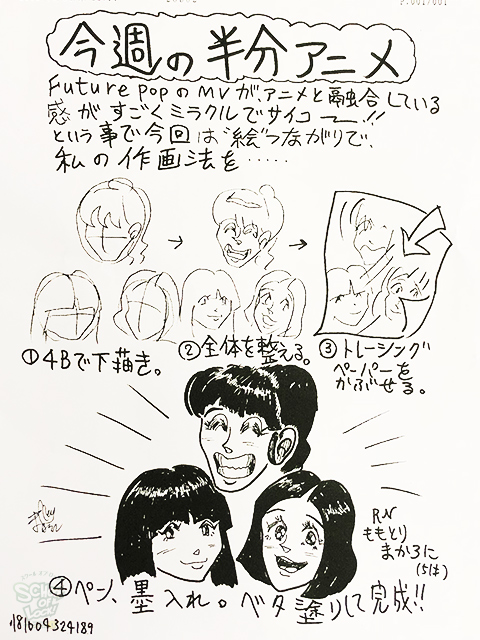 P.001/001
今週の半分アニメ
Future popのMVが、アニメと融合している
感がすごくミラクルでサイコー!!
という事で今回は"絵"つながりで、
私の作画法を・・・・・
①4Bで下描き。
②全体を整える。
③トレーシング
ペーパーを
かぶせる。
RN
ももとり
まかろに
(5は)
④ペン、墨入れ。ベタ塗りして完成!!
SCHOOL OF LOCK!
181604324189